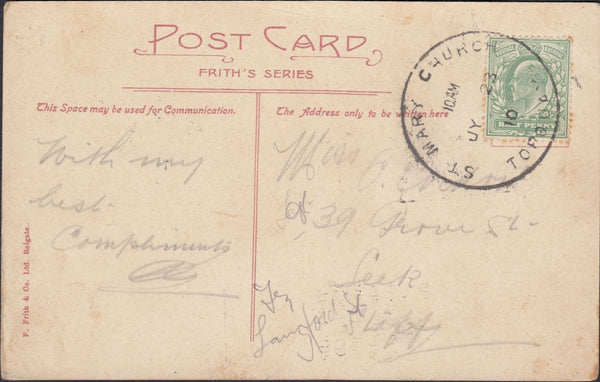 POST CARD
FRITH'S SERIES
This Space may be used for Communication.
The Address only to be written here
ST. MARY CHURCH TORQUAY
10 AM
JY 23
10
HALF PENNY
With my
best
Compliments
Miss
39 Grove St
Leek
Langford St
F. Frith & Co. Ltd. Reigate.